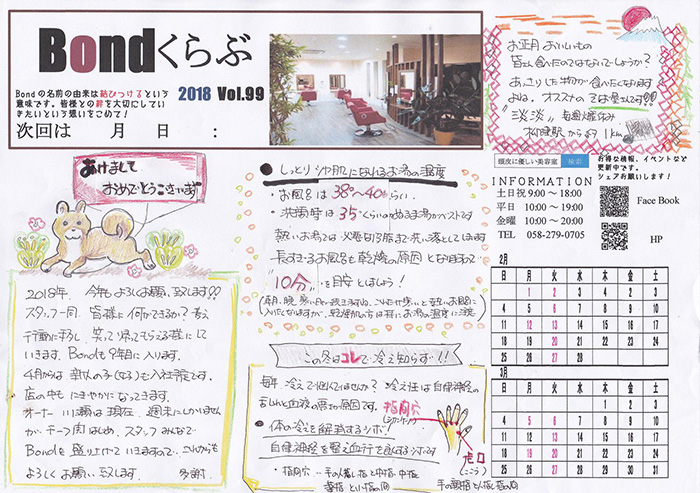 Bondくらぶ
Bondの名前の由来は結びつけるという
意味です。皆様との絆を大切にしてい
きたいという想いをこめて!
2018 Vol.99
次回は 月 日 :
お正月 おいしいもの
皆さん食べたのではないでしょうか?
あっさりした物が食べたくなります
よね。オススメの そば屋さんです!!
"淡淡" 毎週火曜休み
より 1km
頭皮に優しい美容室 検索
お得な情報、イベントなど
更新中です。
シェアお願いします!
INFORMATION
土日祝 9:00 〜 18:00
平日 10:00 〜 19:00
金曜 10:00 〜 20:00
TEL 058-279-0705
Face Book
HP
あけまして
おめでとうございます
2018年、今年もよろしくお願い致します!!
スタッフ一同、皆様に何ができるか?考え
行動に移し、笑って帰ってもらえる様にして
いきます。Bondも9年目に入ります。
4月からは新人の子(女の子)も入社予定です。
店の中もにぎやかになってきます。
オーナー川瀬は現在、週末にしかいません
が、チーフ関はじめ、スタッフみんなで
Bondを盛り上げていきますので、これからも
よろしくお願い致します。
● しっとりツヤ肌になれるお湯の温度
・お風呂は 38°〜40°くらい。
・洗顔時は 35°くらいのぬるま湯がベストです
熱いお湯では必要な皮脂まで洗い落としてしまいます
長すぎるお風呂も乾燥の原因となりますので
"10分"を目安としましょう!
この冬はコレで冷え知らず!!
毎年、冷えで悩んでいませんか?冷え性は自律神経の
乱れと血液の滞りが原因です。
● 体の冷えを解消するツボ!
自律神経を整え血行を良くするツボです
・指間穴
手の人差し指と中指、中指と
薬指、薬指と小指の間
2月
日 月 火 水 木 金 土
1 2 3
4 5 6 7 8 9 10
11 12 13 14 15 16 17
18 19 20 21 22 23 24
25 26 27 28
3月
日 月 火 水 木 金 土
1 2 3
4 5 6 7 8 9 10
11 12 13 14 15 16 17
18 19 20 21 22 23 24
25 26 27 28 29 30 31